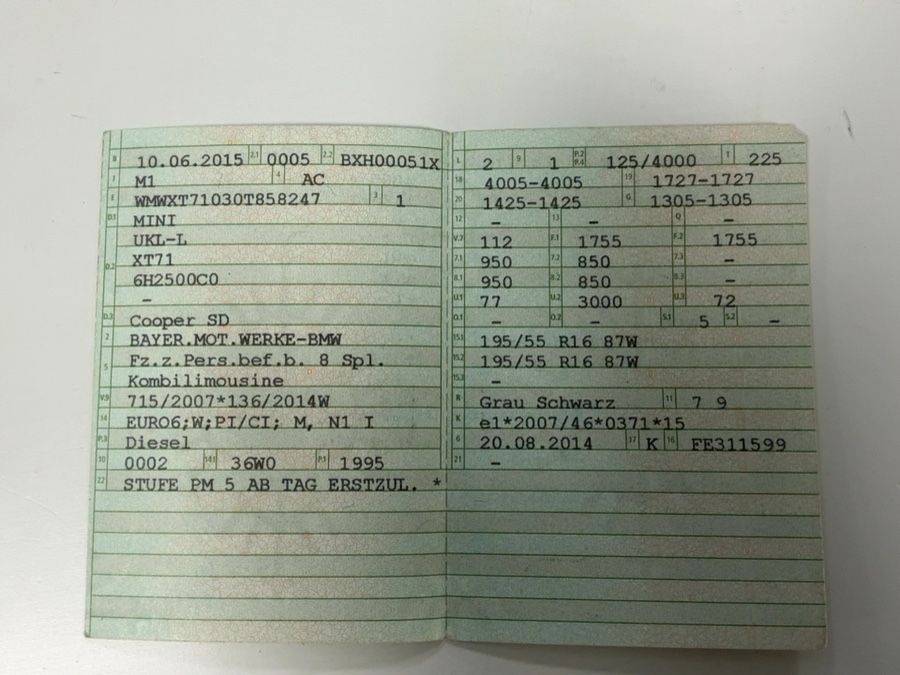 B 10.06.2015 2.1 0005 2.2 BXH00051X
J M1 4 AC
E WMWXT71030T858247 3 1
D.1 MINI
UKL-L
D.2 XT71
6H2500C0
–
D.3 Cooper SD
2 BAYER.MOT.WERKE-BMW
5 Fz.z.Pers.bef.b. 8 Spl.
Kombilimousine
V.9 715/2007*136/2014W
14 EURO6;W;PI/CI; M, N1 I
P.3 Diesel
10 0002 14.1 36W0 P.1 1995
22 STUFE PM 5 AB TAG ERSTZUL. *
L 2 9 1 P.2 P.4 125/4000 T 225
18 4005-4005 19 1727-1727
20 1425-1425 G 1305-1305
12 – 13 – Q –
V.7 112 F.1 1755 F.2 1755
7.1 950 7.2 850 7.3 –
8.1 950 8.2 850 8.3 –
U.1 77 U.2 3000 U.3 72
O.1 – O.2 – S.1 5 S.2 –
15.1 195/55 R16 87W
15.2 195/55 R16 87W
15.3 –
R Grau Schwarz 11 7 9
K e1*2007/46*0371*15
6 20.08.2014 17 K 16 FE311599
21 –